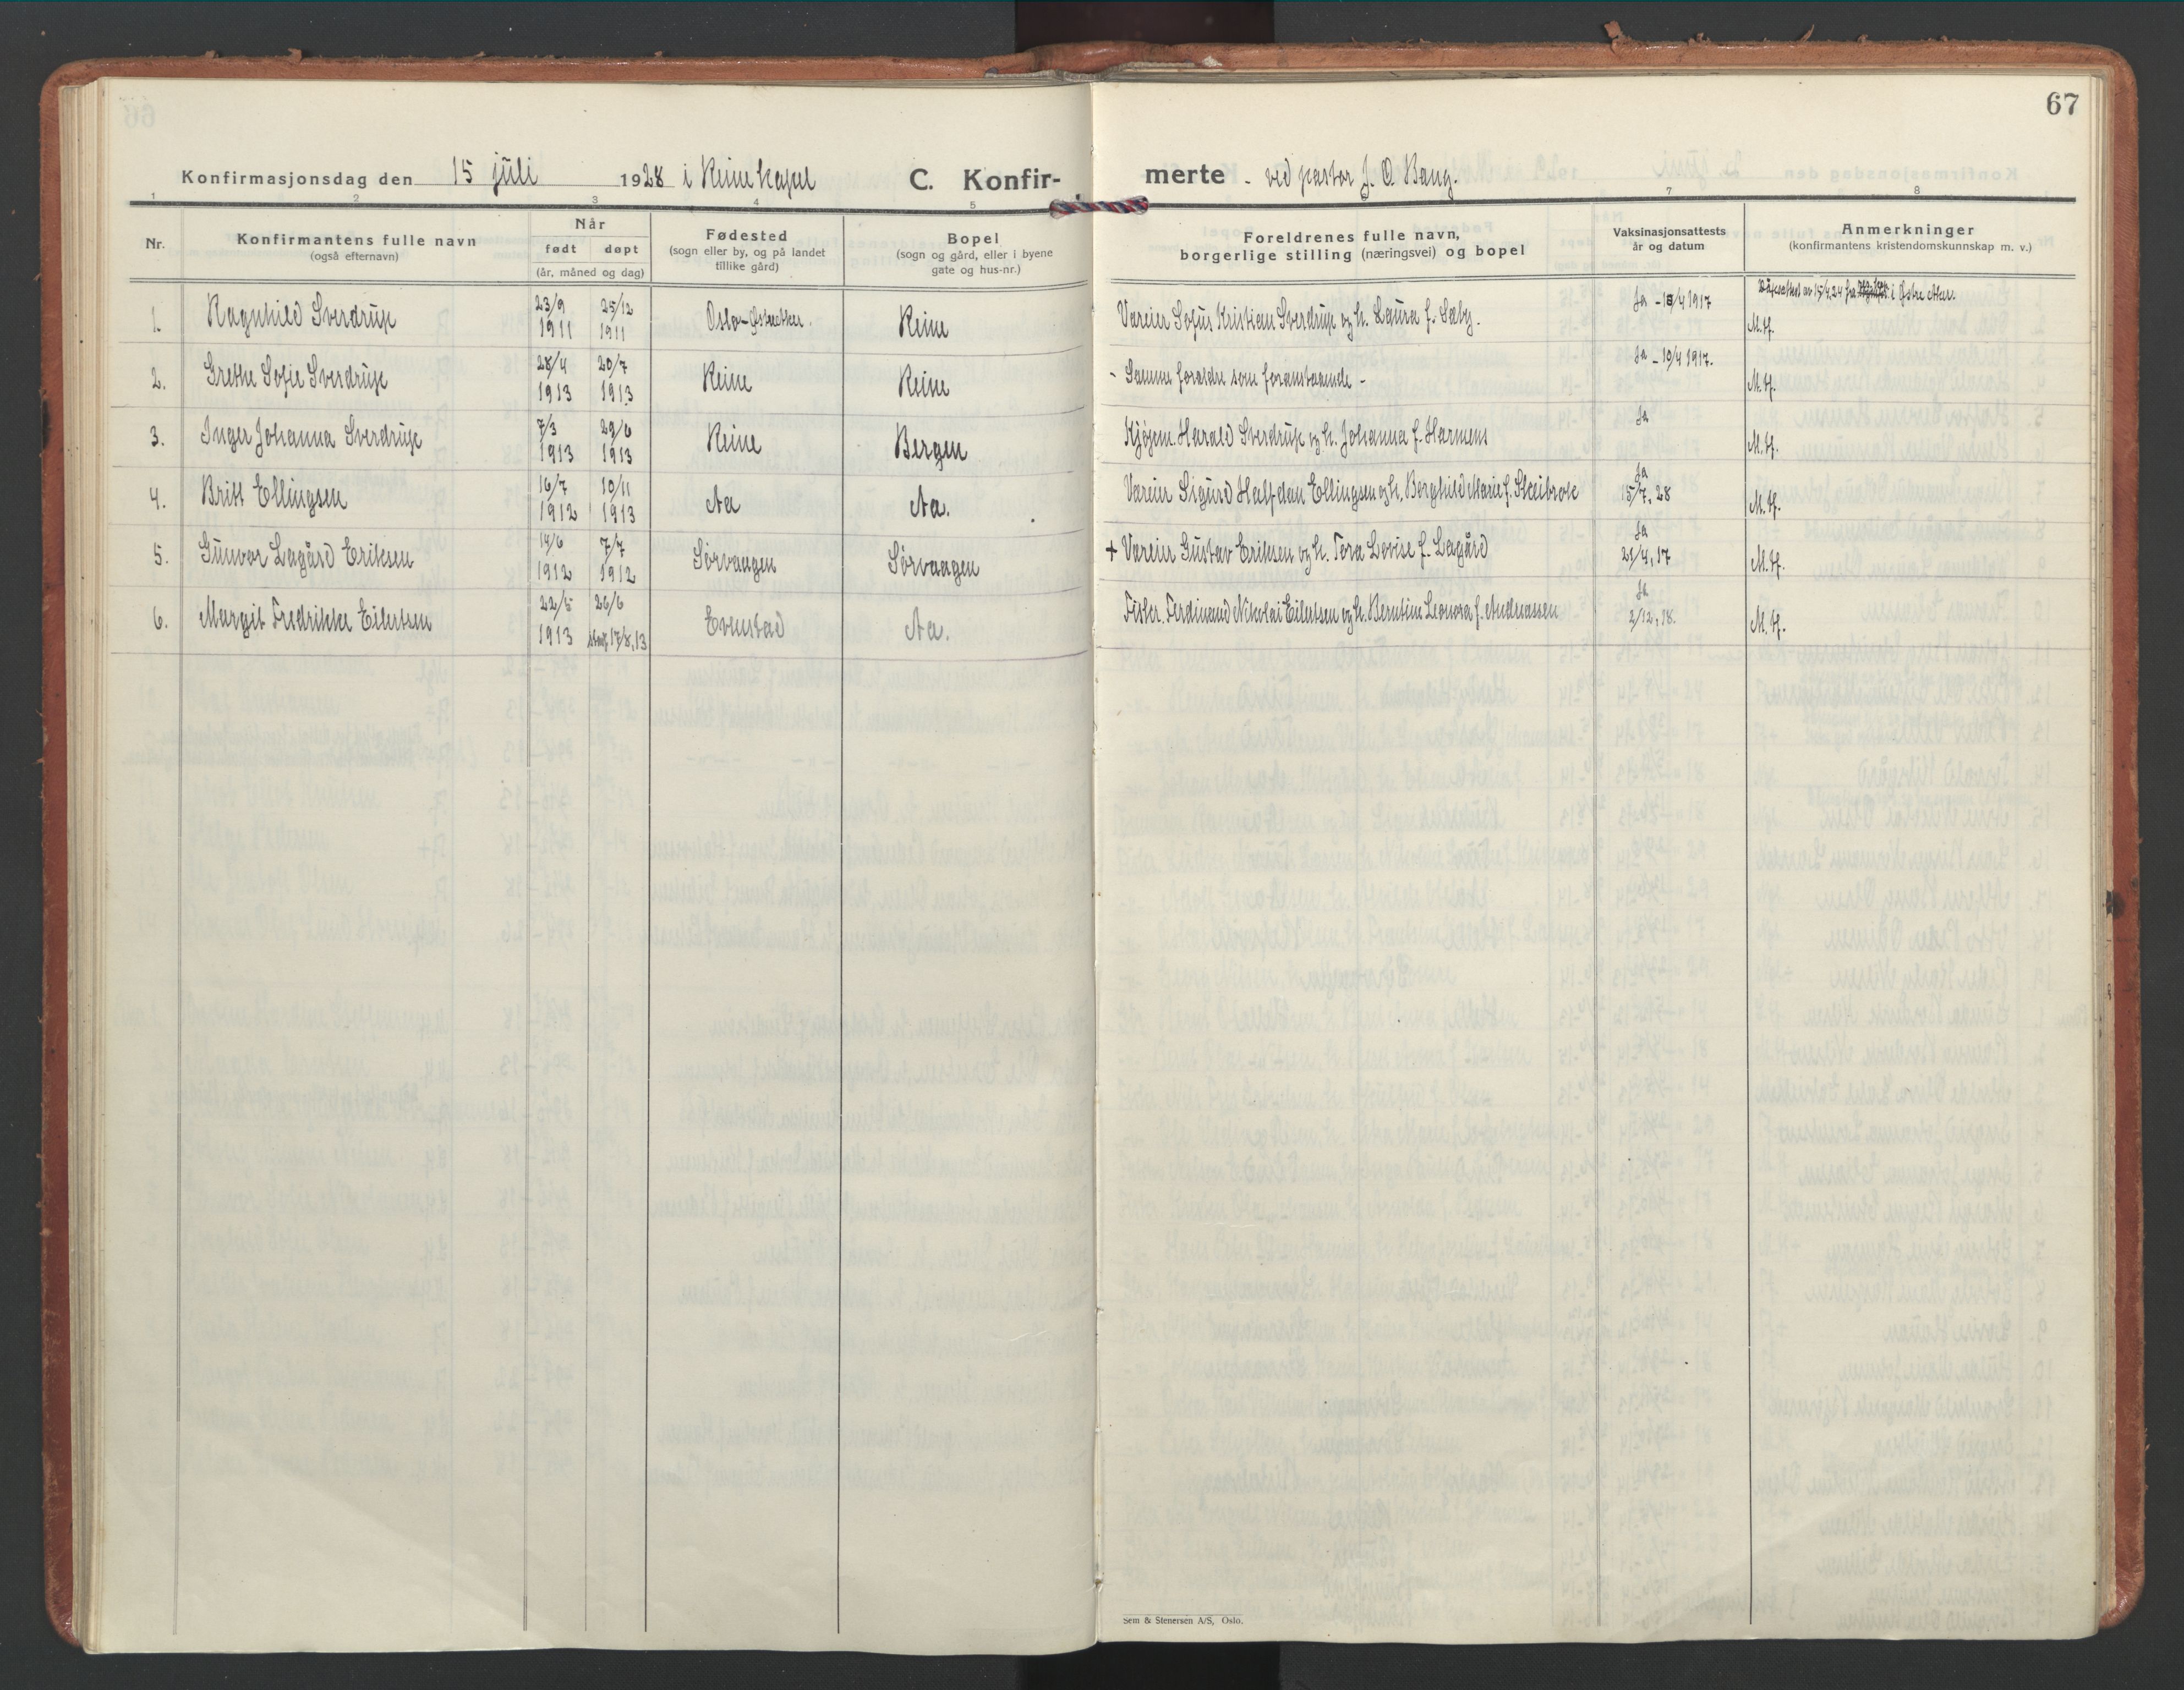 67
Konfirmasjonsdag den 15 juli 1928 i Reine kapel C. Konfir- merte - ved pastor J. O. Bang.
1 2 3 4 5 7 8
Nr. Konfirmantens fulle navn (også efternavn) Når født døpt (år, måned og dag) Fødested (sogn eller by, og på landet tillike gård) Bopel (sogn og gård, eller i byene gate og hus-nr.) Foreldrenes fulle navn, borgerlige stilling (næringsvei) og bopel Vaksinasjonsattests år og datum Anmerkninger (konfirmantens kristendomskunnskap m. v.)
1. Ragnhild Sverdrup 23/9 1911 25/12 1911 Oslo - Østre Aker. Reine Væreier Sofus Kristian Sverdrup og h. Laura f. Sæby. Ja - 18/4 1917 Dåpsattest av 15/4.24 fra i Østre Aker. M.tf.
2. Grethe Sofie Sverdrup 28/4 1913 20/7 1913 Reine Reine - Samme foreldre som foranstaaende - Ja - 19/4 1917. M.tf.
3. Inger Johanna Sverdrup 7/3 1913 29/6 1913 Reine Bergen Kjøpm. Harald Sverdrup og h. Johanna f. Harmens Ja M.tf.
4. Britt Ellingsen 16/7 1912 10/11 1913 Aa Aa. Væreier Sigurd Halfdan Ellingsen og h. Borghild Marie f. Skeibrok Ja 15/7, 28 M.tf.
5. Gunvor Lagård Eriksen 14/6 1912 7/7 1912 Sørvaagen Sørvaagen + Væreier Gustav Eriksen og h. Tora Lovise f. Lagård Ja 21/4, 17 M.tf.
6. Margit Fredrikke Eilertsen 22/5 1913 26/6 17/8, 13 Evenstad Aa. Fisker. Ferdinand Nikolai Eilertsen og h. Berntine Leonora f. Andreassen Ja 2/12, 18. M.tf.
Sem & Stenersen A/S, Oslo.